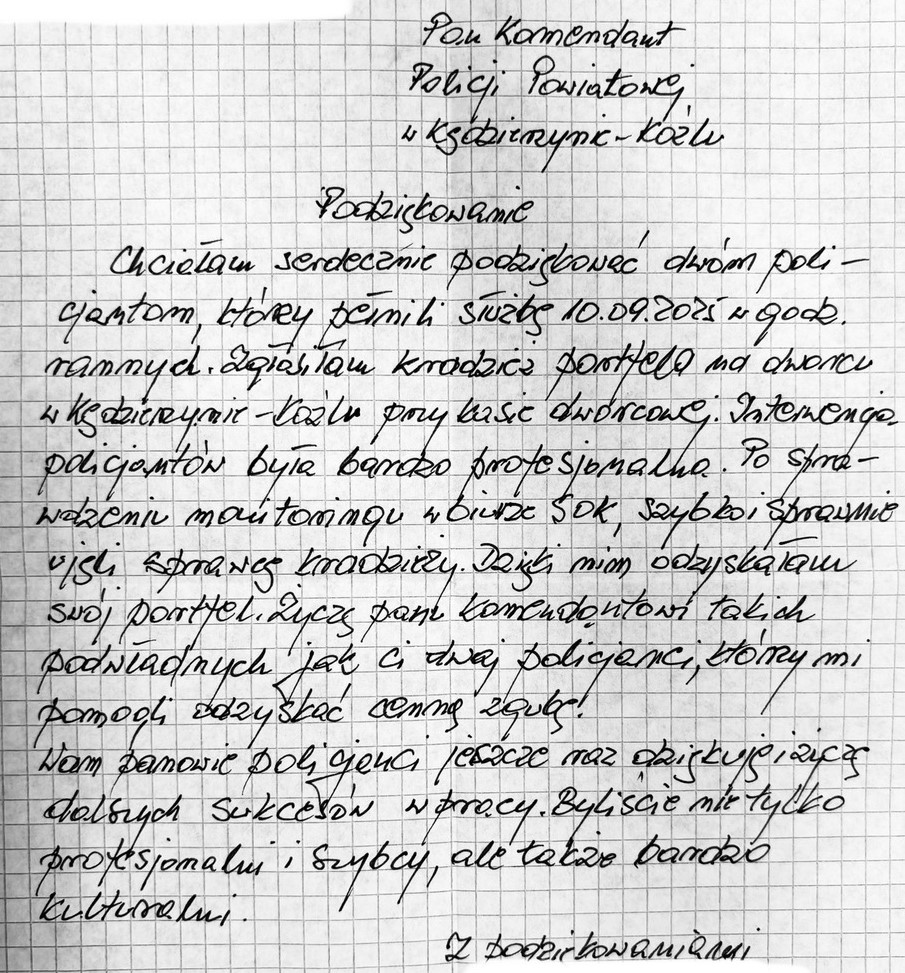 Pan Komendant
Policji Powiatowej
w Kędzierzynie-Koźlu
Podziękowanie
Chciałam serdecznie podziękować dwóm poli-
cjantom, którzy pełnili służbę 10.09.2025 w godz.
rannych. Zgłosiłam kradzież portfela na dworcu
w Kędzierzynie-Koźlu przy kasie dworcowej. Interwencja
policjantów była bardzo profesjonalna. Po spra-
wdzeniu monitoringu w biurze SOK, szybko i sprawnie
ujęli sprawcę kradzieży. Dzięki nim odzyskałam
swój portfel. Życzę panu komendantowi takich
podwładnych jak ci dwaj policjanci, którzy mi
pomogli odzyskać cenną zgubę!
Wam panowie policjanci jeszcze raz dziękuję i życzę
dalszych sukcesów w pracy. Byliście nie tylko
profesjonalni i szybcy, ale także bardzo
kulturalni.
Z podziękowaniami